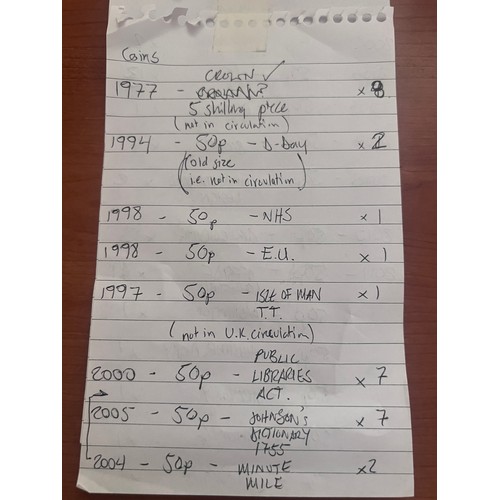 Coins
CROWN ✓
1977 - x 8
5 shilling piece
(not in circulation)
1994 - 50p - D-Day x 2
(old size
i.e. not in circulation)
1998 - 50p - NHS x 1
1998 - 50p - E.U. x 1
1997 - 50p - ISLE OF MAN x 1
T.T.
(not in U.K. circulation)
PUBLIC
2000 - 50p - LIBRARIES x 7
ACT.
2005 - 50p - JOHNSON'S x 7
DICTIONARY
1755
2004 - 50p - MINUTE x2
MILE